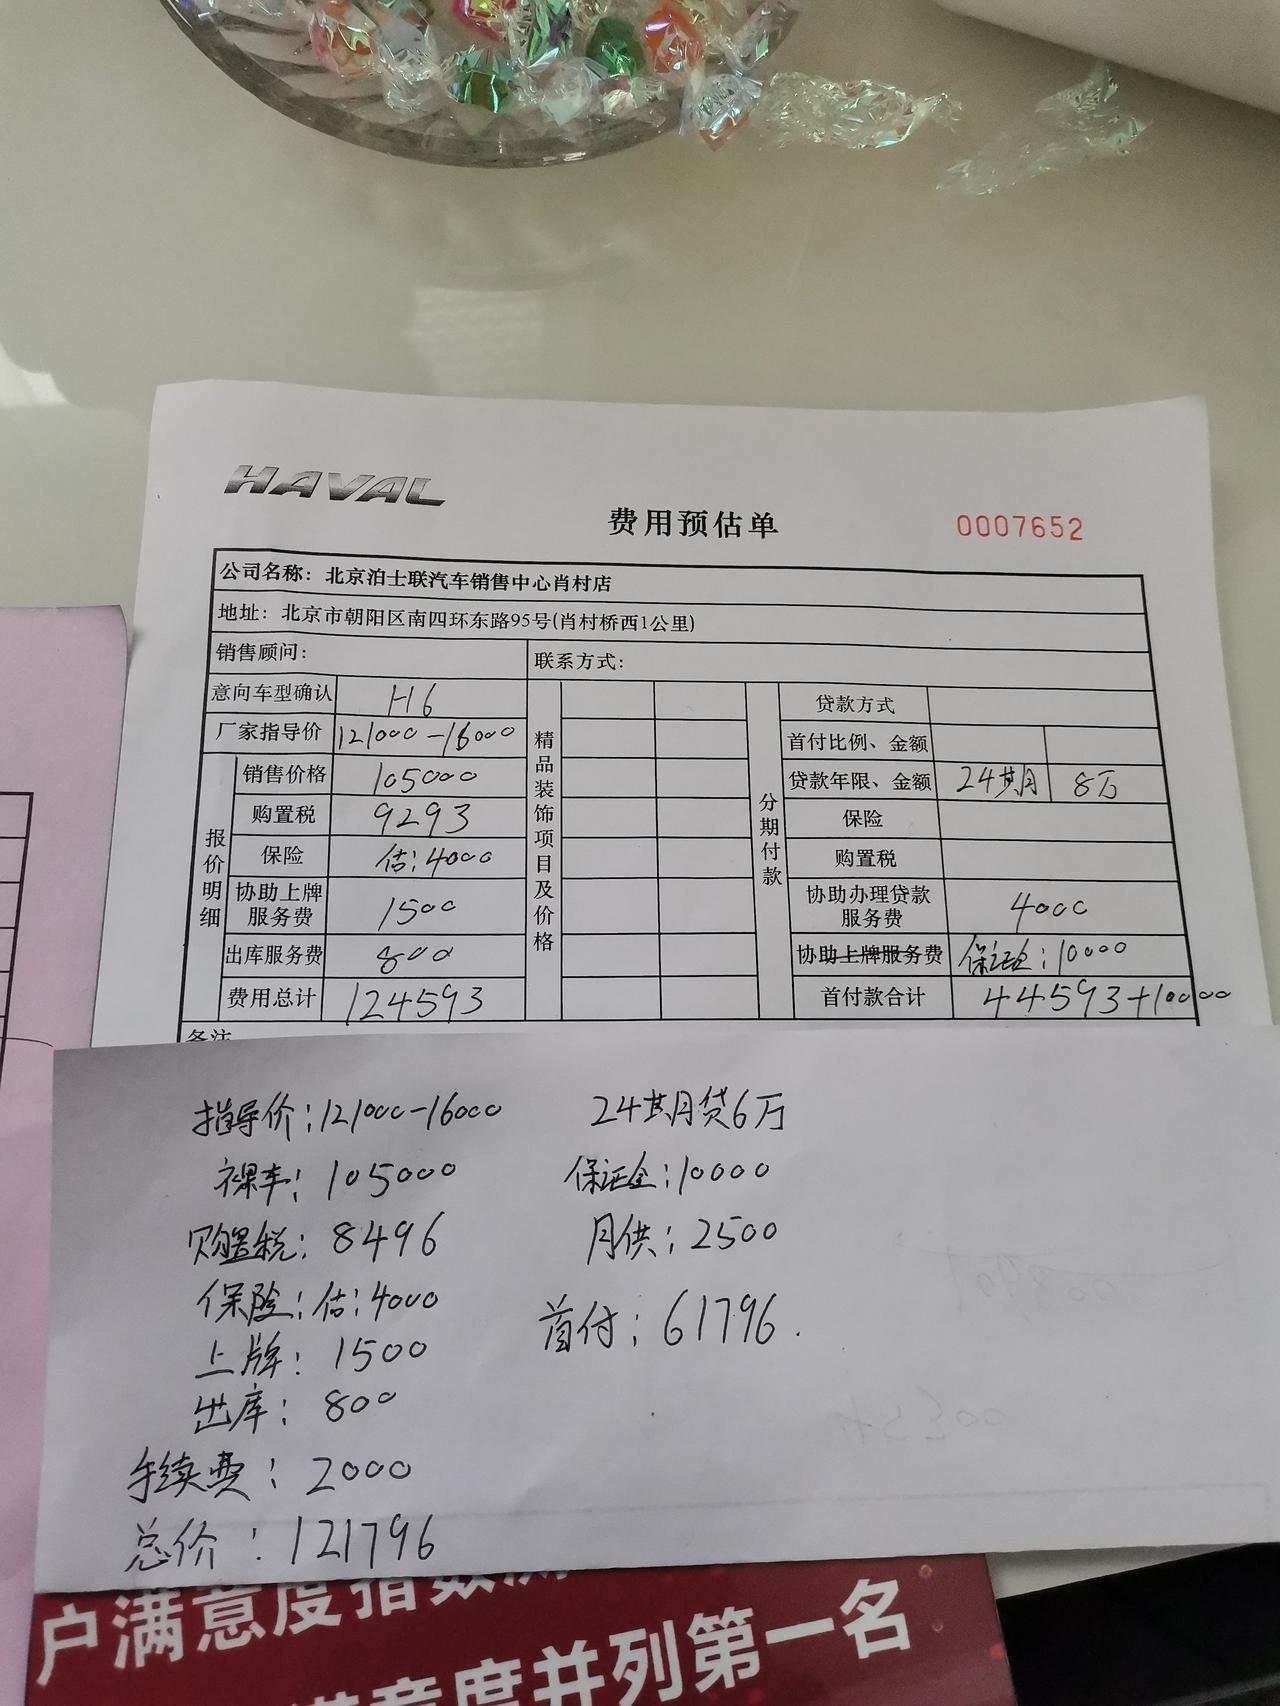 HAVAL
费用预估单
0007652
公司名称：北京泊士联汽车销售中心肖村店
地址：北京市朝阳区南四环东路95号(肖村桥西1公里)
销售顾问：
联系方式：
意向车型确认 H6
厂家指导价 121000-16000
报价明细
销售价格 105000
购置税 9293
保险 估：4000
协助上牌服务费 1500
出库服务费 800
费用总计 124593
精品装饰项目及价格
分期付款
贷款方式
首付比例、金额
贷款年限、金额 24期 8万
保险
购置税
协助办理贷款服务费 4000
协助上牌服务费 保证金：10000
首付款合计 44593+10000
备注
指导价：121000-16000
裸车：105000
购置税：8496
保险：估：4000
上牌：1500
出库：800
手续费：2000
总价：121796
24期贷6万
保证金：10000
月供：2500
首付：61796.
户满意度指数测
满意度并列第一名